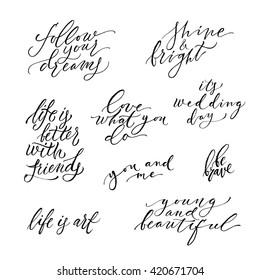 follow
your
dreams
shine
&
bright
life is
better
with
friends
love
what you
do
its
wedding
day
you and
me
be
brave
life is art
young
and
beautiful
www.shutterstock.com · 420671704